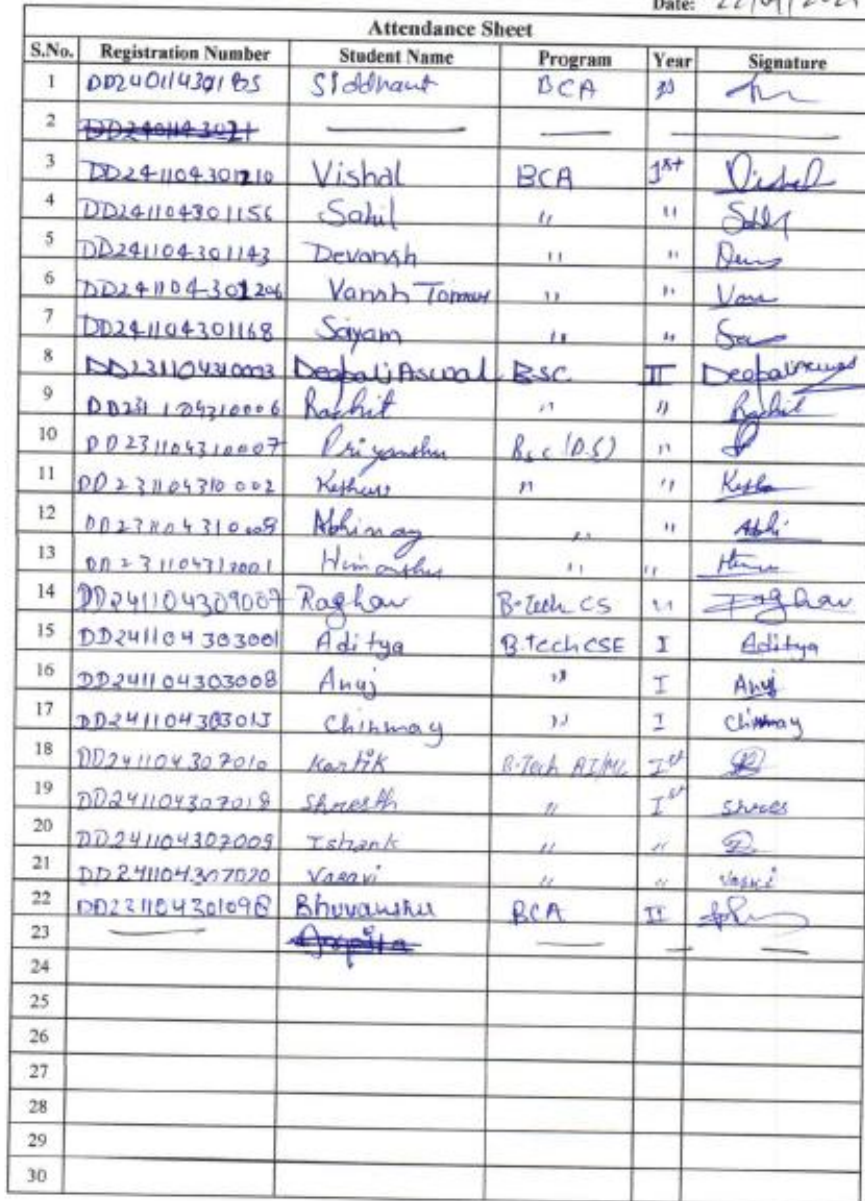 Date: 22/04/202
Attendance Sheet
S.No. Registration Number Student Name Program Year Signature
1 Siddhant BCA
2
3 DD241104301210 Vishal BCA 1st Vishal
4 DD241104301156 Sahil " "
5 DD241104301143 Devansh " "
6 DD241104301206 Vansh Tomar " "
7 DD241104301168 Sayam " "
8 DD231104310003 Deepali Aswal BSC II
9 Rachit " " Rachit
10 DD231104310007 Priyanshu B.Sc (D.S) "
11 DD231104310002 " "
12 Abhinay " " Abhi
13 Himanshu " "
14 DD241104309007 Raghav B-Tech CS " Raghav
15 DD241104303001 Aditya B.Tech CSE I Aditya
16 DD241104303008 Anuj " I Anuj
17 DD241104303013 Chinmay " I Chinmay
18 DD241104307010 Kartik B-Tech AI/ML Ist
19 DD241104307018 Shresth " Ist Shres
20 DD241104307009 Ishank " "
21 DD241104307020 Vasavi " "
22 Bhuvanshu BCA II
23
24
25
26
27
28
29
30